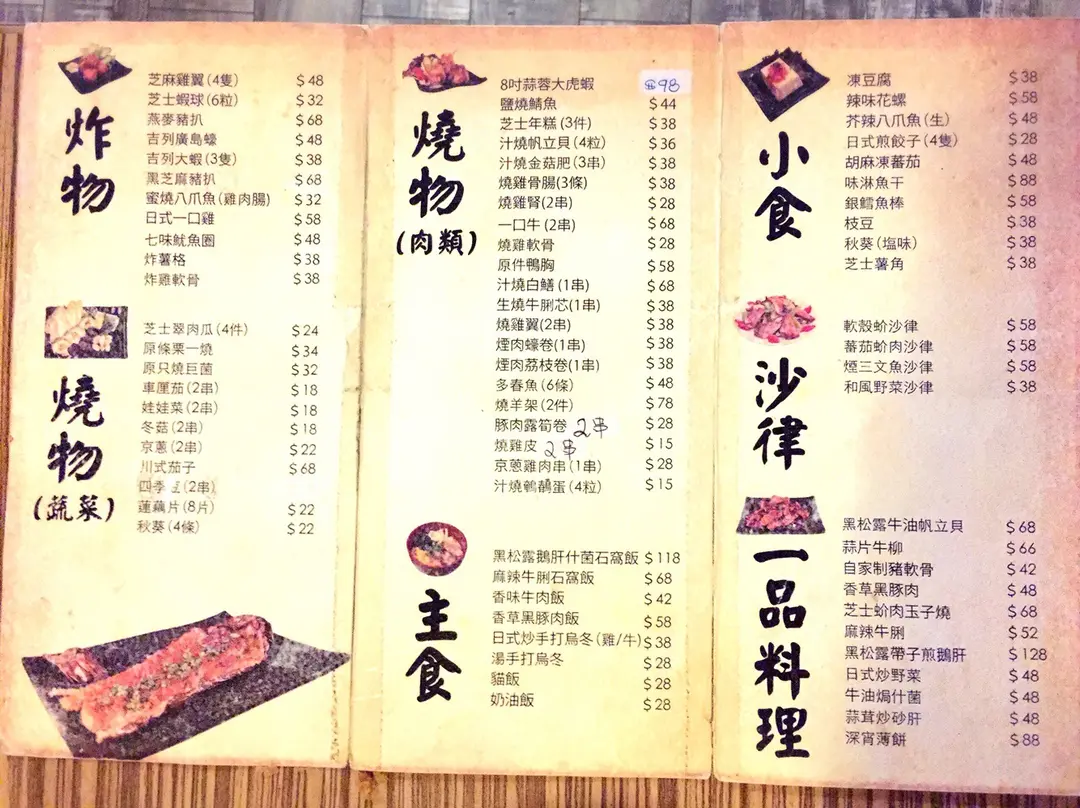 炸物
芝麻雞翼(4隻) $48
芝士蝦球(6粒) $32
燕麥豬扒 $68
吉列廣島蠔 $48
吉列大蝦(3隻) $38
黑芝麻豬扒 $68
蜜燒八爪魚(雞肉腸) $32
日式一口雞 $58
七味魷魚圈 $48
炸薯格 $38
炸雞軟骨 $38
燒物
(蔬菜)
芝士翠肉瓜(4件) $24
原條粟一燒 $34
原只燒巨菌 $32
車厘茄(2串) $18
娃娃菜(2串) $18
冬菇(2串) $18
京蔥(2串) $22
川式茄子 $68
四季 (2串)
蓮藕片(8片) $22
秋葵(4條) $22
燒物
(肉類)
8吋蒜蓉大虎蝦 $98
鹽燒鯖魚 $44
芝士年糕(3件) $38
汁燒帆立貝(4粒) $36
汁燒金菇肥(3串) $38
燒雞骨腸(3條) $38
燒雞腎(2串) $28
一口牛(2串) $68
燒雞軟骨 $28
原件鴨胸 $58
汁燒白鱔(1串) $68
生燒牛脷芯(1串) $38
燒雞翼(2串) $38
煙肉蠔卷(1串) $38
煙肉荔枝卷(1串) $38
多春魚(6條) $48
燒羊架(2件) $78
豚肉露筍卷 2串 $28
燒雞皮 2串 $15
京蔥雞肉串(1串) $28
汁燒鵪鶉蛋(4粒) $15
主食
黑松露鵝肝什菌石窩飯 $118
麻辣牛脷石窩飯 $68
香味牛肉飯 $42
香草黑豚肉飯 $58
日式炒手打烏冬(雞/牛) $38
湯手打烏冬 $28
貓飯 $28
奶油飯 $28
小食
凍豆腐 $38
辣味花螺 $58
芥辣八爪魚(生) $48
日式煎餃子(4隻) $28
胡麻凍蕃茄 $48
味淋魚干 $88
銀鱈魚棒 $58
枝豆 $38
秋葵(塩味) $38
芝士薯角 $38
沙律
軟殼蚧沙律 $58
蕃茄蚧肉沙律 $58
煙三文魚沙律 $58
和風野菜沙律 $38
一品料理
黑松露牛油帆立貝 $68
蒜片牛柳 $66
自家制豬軟骨 $42
香草黑豚肉 $48
芝士蚧肉玉子燒 $68
麻辣牛脷 $52
黑松露帶子煎鵝肝 $128
日式炒野菜 $48
牛油焗什菌 $48
蒜茸炒砂肝 $48
深宵薄餅 $88